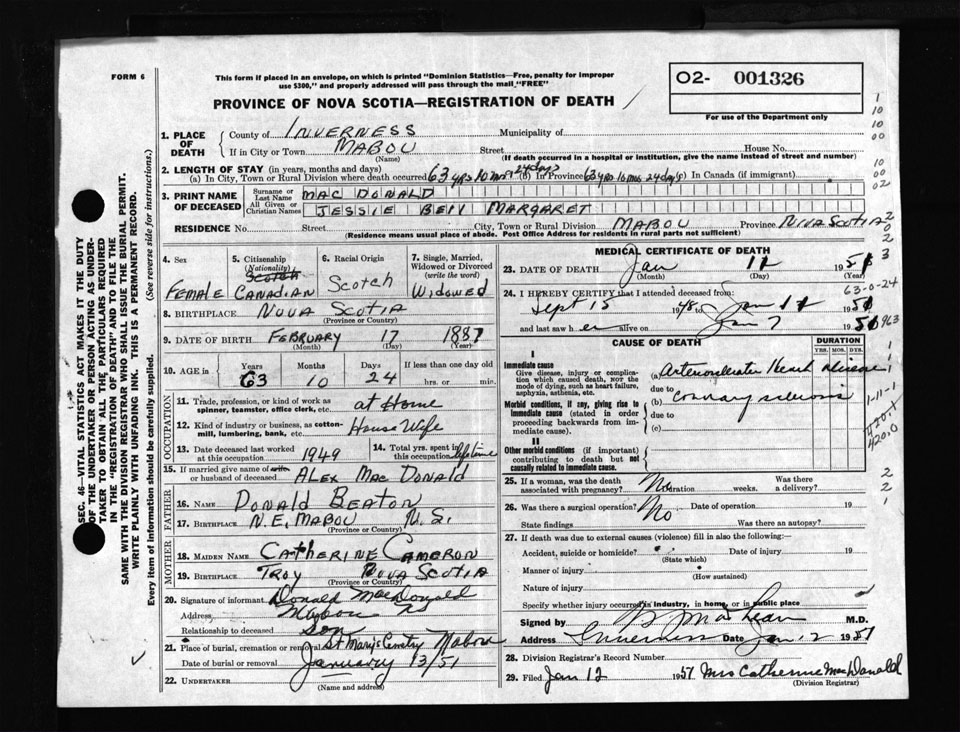 FORM 6
This form if placed in an envelope, on which is printed "Dominion Statistics—Free, penalty for improper
use $300," and properly addressed will pass through the mail "FREE"
O2- 001326
For use of the Department only
PROVINCE OF NOVA SCOTIA—REGISTRATION OF DEATH
1. PLACE OF DEATH
County of INVERNESS Municipality of
If in City or Town MABOU Street House No.
(Name) (If death occurred in a hospital or institution, give the name instead of street and number)
2. LENGTH OF STAY (in years, months and days)
(a) In City, Town or Rural Division where death occurred 63 yrs 10 mos 24 days (b) In Province 63 yrs 10 mos 24 days (c) In Canada (if immigrant)
3. PRINT NAME OF DECEASED
Surname or Last Name MAC DONALD
All Given or Christian Names JESSIE BELL MARGARET
RESIDENCE No. Street City, Town or Rural Division MABOU Province NOVA SCOTIA
(Residence means usual place of abode. Post Office Address for residents in rural parts not sufficient)
4. Sex FEMALE
5. Citizenship (Nationality) Scotch CANADIAN
6. Racial Origin SCOTCH
7. Single, Married, Widowed or Divorced (write the word) WIDOWED
8. BIRTHPLACE NOVA SCOTIA
(Province or Country)
9. DATE OF BIRTH FEBRUARY 17 1887
(Month) (Day) (Year)
10. AGE in Years 63 Months 10 Days 24 If less than one day old hrs. or min.
OCCUPATION
11. Trade, profession, or kind of work as spinner, teamster, office clerk, etc. at Home
12. Kind of industry or business, as cotton-mill, lumbering, bank, etc. House Wife
13. Date deceased last worked at this occupation 1949
14. Total yrs. spent in this occupation lifetime
15. If married give name of wife or husband of deceased ALEX MAC DONALD
FATHER
16. NAME DONALD BEATON
17. BIRTHPLACE N.E. MABOU N.S.
(Province or Country)
MOTHER
18. MAIDEN NAME CATHERINE CAMERON
19. BIRTHPLACE TROY NOVA SCOTIA
(Province or Country)
20. Signature of informant Donald MacDonald
Address Mabou NS
Relationship to deceased son
21. Place of burial, cremation or removal St Mary's Cemetry Mabou
Date of burial or removal January 13/51
22. UNDERTAKER
(Name and address)
MEDICAL CERTIFICATE OF DEATH
23. DATE OF DEATH Jan 11 1951
(Month) (Day) (Year)
24. I HEREBY CERTIFY that I attended deceased from:
Sept 15 1948 to Jan 11 1951
and last saw her alive on Jan 7 1951
63-0-24
963
CAUSE OF DEATH
DURATION
YRS. MOS. DYS.
I
Immediate cause
Give disease, injury or complication which caused death, NOT the mode of dying, such as heart failure, asphyxia, asthenia, etc.
(a) Arteriosclerotic Heart disease
due to
Morbid conditions, if any, giving rise to immediate cause (stated in order proceeding backwards from immediate cause).
(b) coronary sclerosis
due to
(c)
II
Other morbid conditions (if important) contributing to death but not causally related to immediate cause.
1-11-1
420.0
25. If a woman, was the death associated with pregnancy? No Duration weeks. Was there a delivery?
26. Was there a surgical operation? No Date of operation 19
State findings Was there an autopsy?
27. If death was due to external causes (violence) fill in also the following:
Accident, suicide or homicide? Date of injury 19
(State which)
Manner of injury
(How sustained)
Nature of injury
Specify whether injury occurred in industry, in home, or in public place
Signed by M.D.
Address Inverness Date Jan 12 1951
28. Division Registrar's Record Number
29. Filed Jan 12 1951 Mrs Catherine MacDonald
(Division Registrar)
SEC. 46—VITAL STATISTICS ACT MAKES IT THE DUTY
OF THE UNDERTAKER OR PERSON ACTING AS UNDER-
TAKER TO OBTAIN ALL THE PARTICULARS REQUIRED
IN THE "REGISTRATION OF DEATH" AND TO FILE THE
SAME WITH THE DIVISION REGISTRAR WHO SHALL ISSUE THE BURIAL PERMIT.
WRITE PLAINLY WITH UNFADING INK. THIS IS A PERMANENT RECORD.
Every item of information should be carefully supplied. (See reverse side for instructions.)